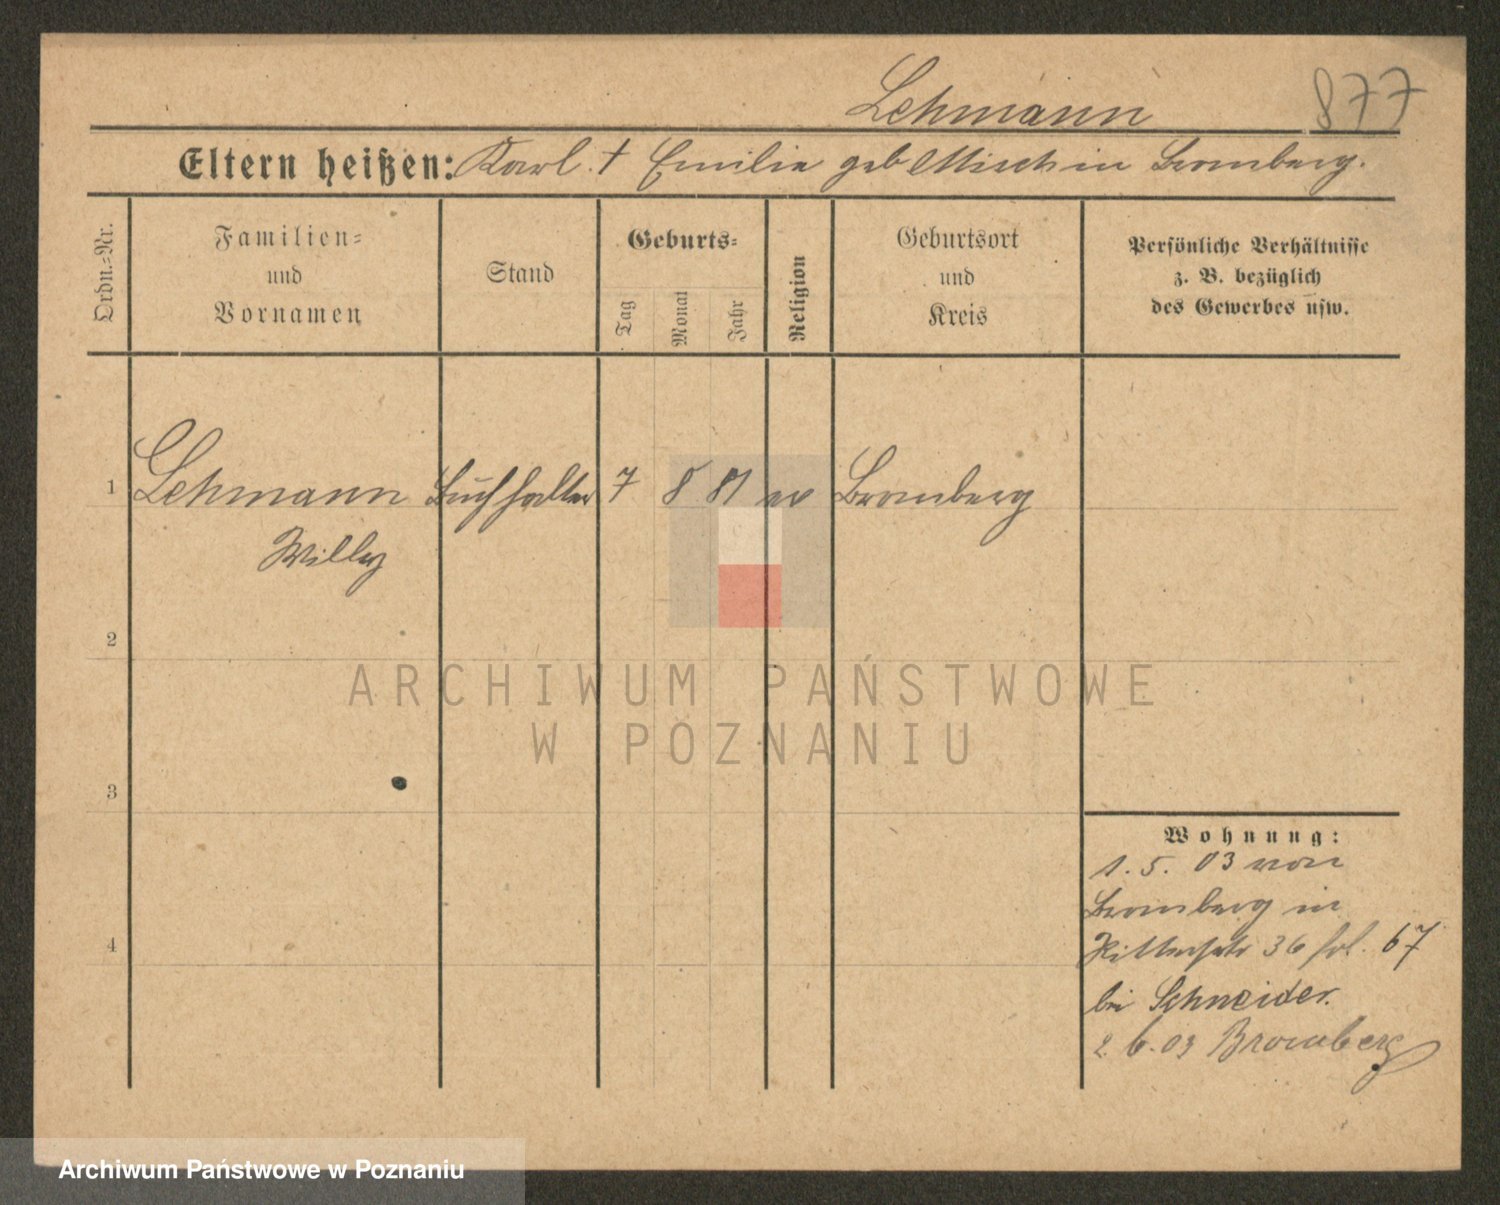 Lehmann 877
Eltern heißen: Karl † Emilie geb Misch in Bromberg.
Ordn.-Nr.
Familien- und Vornamen
Stand
Geburts-
Tag
Monat
Jahr
Religion
Geburtsort und Kreis
Persönliche Verhältnisse z. B. bezüglich des Gewerbes usw.
1 Lehmann Buchhalter 7 8 81 ev Bromberg
Willy
2
3
4
Wohnung:
1. 5. 03 von
Bromberg in
Ritterstr 36 fol. 67
bei Schneider.
2. 6. 03 Bromberg
ARCHIWUM PAŃSTWOWE
W POZNANIU
Archiwum Państwowe w Poznaniu